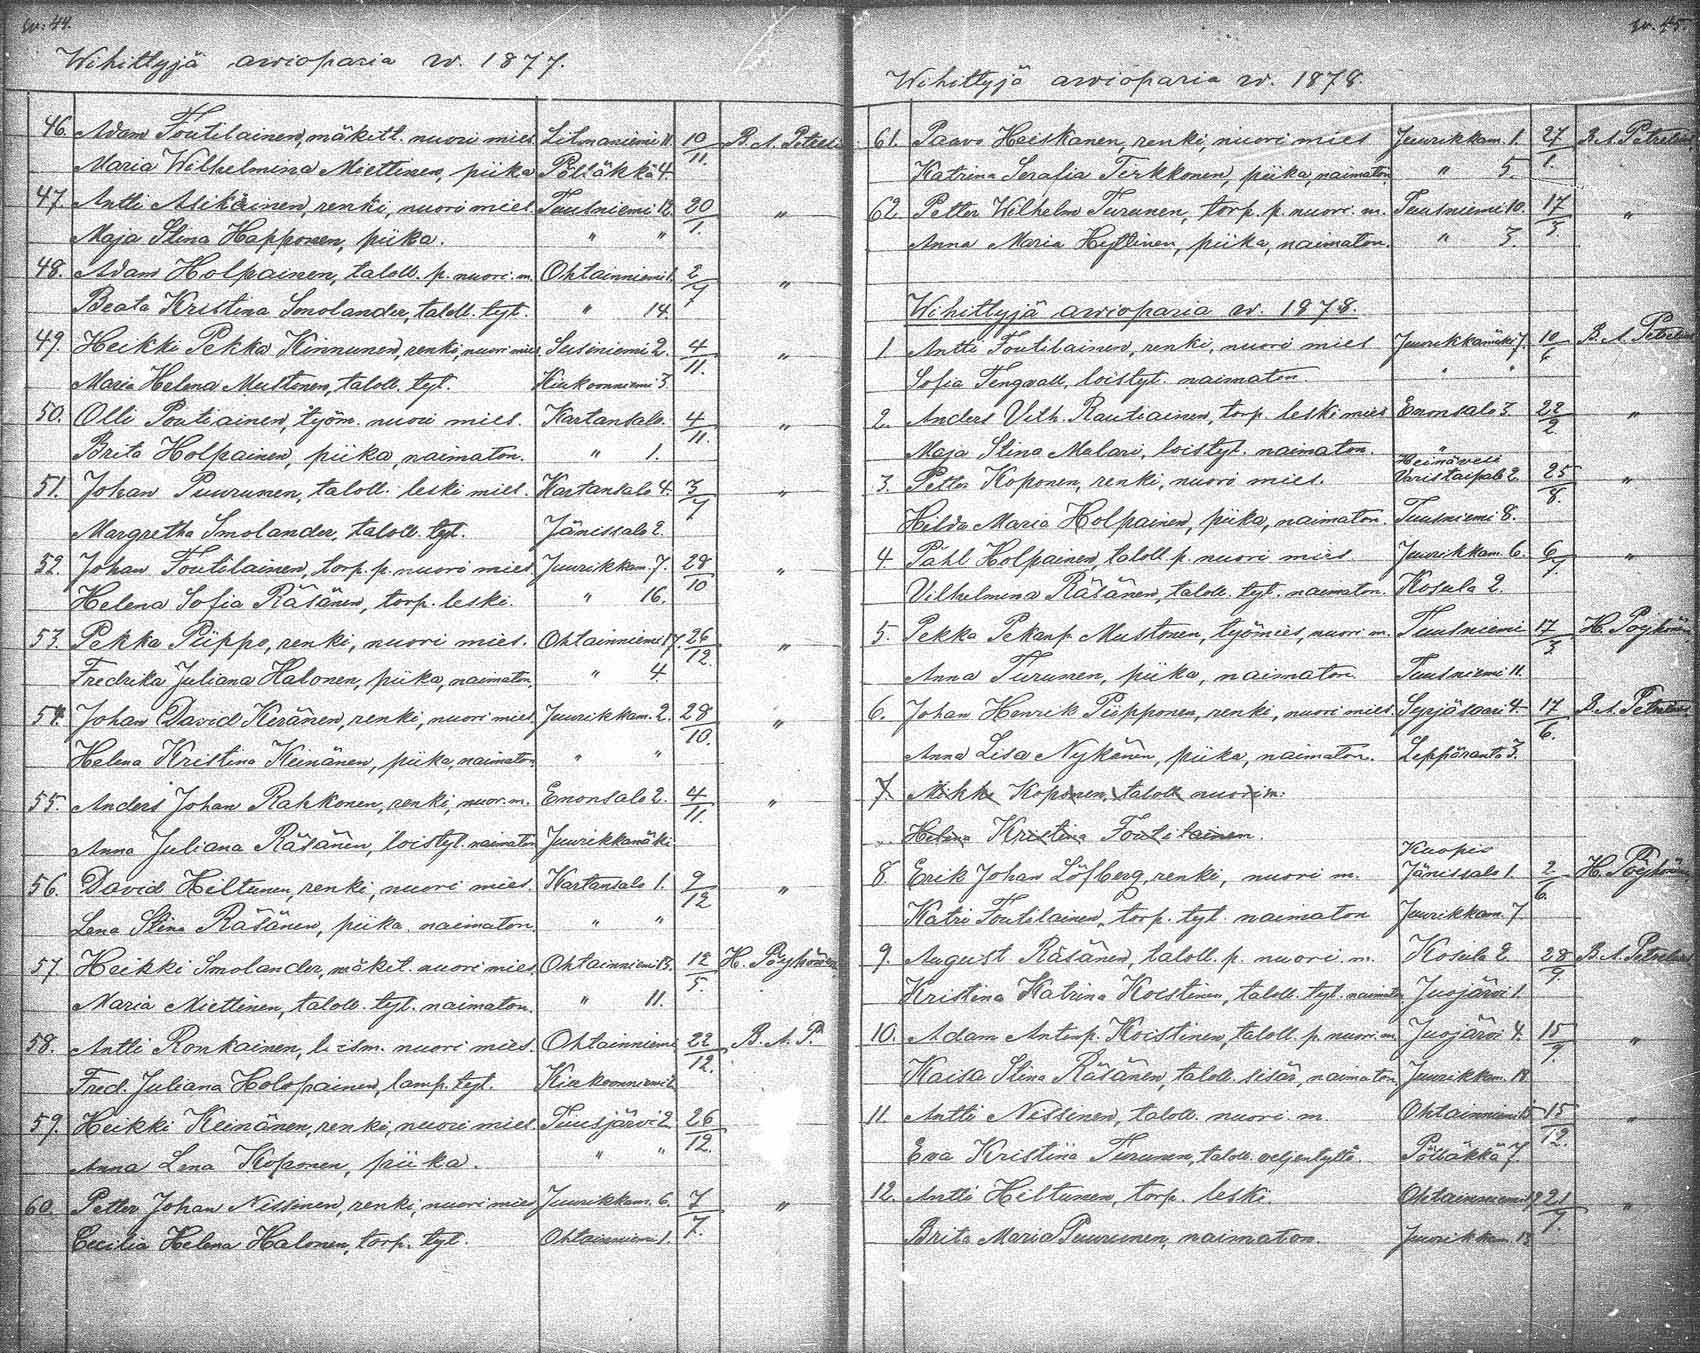 siv. 44.
Wihittyjä awioparia w. 1877.
46. Adam Toutilainen, mäkitt. nuori mies Litmaniemi 11. 10/11. B. A. Petreli
Maria Wilhelmina Miettinen, piika Pölläkkä 4
47. Antti Asikainen, renki, nuori mies Tuusniemi 12. 20/1. "
Maja Stina Happonen, piika. " "
48. Adam Holpainen, taloll. p. nuori. m. Ohtainniemi 1. 2/7 "
Beata Kristina Smolander, taloll. tyt. " 14.
49. Heikki Pekka Kinnunen, renki, nuori mies Susiniemi 2. 4/11. "
Maria Helena Mustonen, taloll. tyt. Kiukoonniemi 3.
50. Olli Poutiainen, työm. nuori mies. Kartansalo. 4/11. "
Brita Holpainen, piika, naimaton. " 1.
51. Johan Puurunen, taloll. leski mies. Kartansalo 4. 3/7 "
Margretha Smolander, taloll. tyt. Jänissalo 2.
52. Johan Toutilainen, torp. p. nuori mies Juurikkam. 7. 28/10 "
Helena Sofia Räsänen, torp. leski. " 16.
53. Pekka Piippo, renki, nuori mies. Ohtainniemi 17. 26/12. "
Fredrika Juliana Halonen, piika, naimaton. " 4.
54. Johan David Keränen, renki, nuori mies Juurikkam. 2. 28/10. "
Helena Kristina Keinänen, piika, naimaton " "
55. Anders Johan Rahkonen, renki, nuor. m. Enonsalo 2. 4/11. "
Anna Juliana Räsänen, loistyt. naimaton Juurikkamäki
56. David Hiltunen, renki, nuori mies. Kartansalo 1. 9/12 "
Lena Stina Räsänen, piika. naimaton. " "
57. Heikki Smolander, mäkit. nuori mies. Ohtainniemi 13. 12/5. H. Pöyhönen
Maria Miettinen, taloll. tyt. naimaton. " 11.
58. Antti Ronkainen, loism. nuori mies. Ohtainniemi 22/12. B. A. P.
Fred. Juliana Holopainen, lamp. tyt. Kiukoonniemi 2
59. Heikki Keinänen, renki, nuori mies. Tuusjärvi 2 26/12. "
Anna Lena Koponen, piika. " "
60. Petter Johan Nissinen, renki, nuori mies Juurikkam. 6. 7/7. "
Cecilia Helena Halonen, torp. tyt. Ohtainniemi 1.
siv. 45.
Wihittyjä awioparia w. 1878.
61. Paavo Heiskanen, renki, nuori mies Juurikkam. 1. 27/1. B. A. Petrelius
Katrina Serafia Terkkonen, piika, naimaton. " 5.
62. Petter Wilhelm Turunen, torp. p. nuori. m. Tuusniemi 10. 17/3 "
Anna Maria Hyttinen, piika, naimaton. " 3.
Wihittyjä awioparia w. 1878.
1 Antti Toutilainen, renki, nuori mies Juurikkamäki 7. 10/6 B. A. Petrelius
Sofia Tengvall, loistyt. naimaton. " "
2. Anders Vilh. Rautiainen, torp. leski mies Enonsalo 3. 22/2. "
Maja Stina Malari, loistyt. naimaton. "
3. Petter Koponen, renki, nuori mies. Heinävesi Varistaipale 2. 25/8. "
Hilda Maria Holpainen, piika, naimaton. Tuusniemi 8.
4 Påhl Holpainen, taloll. p. nuori mies. Juurikkam. 6. 6/7. "
Vilhelmina Räsänen, taloll. tyt. naimaton. Kosula 2.
5. Pekka Pekanp. Mustonen, työmies, nuori m. Tuusniemi 17/3 H. Pöyhönen
Anna Turunen, piika, naimaton. Tuusniemi 11.
6. Johan Henrik Piipponen, renki, nuori mies. Syrjäwari 4. 17/6. B. A. Petrelius
Anna Lisa Nykänen, piika, naimaton. Leppäranta 3.
7. Mikki Koponen, taloll. nuori m.
" Helena Kristina Toutilainen.
8. Erik Johan Löfberg, renki, nuori m. Kuopio Jänissalo 1. 2/6. H. Pöyhönen
Katri Toutilainen, torp. tyt. naimaton Juurikkam. 7
9. August Räsänen, taloll. p. nuori. m. Kosula 2 28/9. B. A. Petrelius
Kristina Katrina Koistinen, taloll. tyt. naimaton Juojärvi 1.
10. Adam Antinp. Koistinen, taloll. p. nuori m. Juojärvi 4. 15/9. "
Kaisa Stina Räsänen, taloll. sisar, naimaton Juurikkam. 18
11. Antti Nissinen, taloll. nuori. m. Ohtainniemi 15 15/12. "
Eva Kristiina Turunen, taloll. veljentyttö. Pölläkkä 7.
12. Antti Hiltunen, torp. leski. Ohtainniemi 19 21/9. "
Brita Maria Puurunen, naimaton. Juurikkam. 13